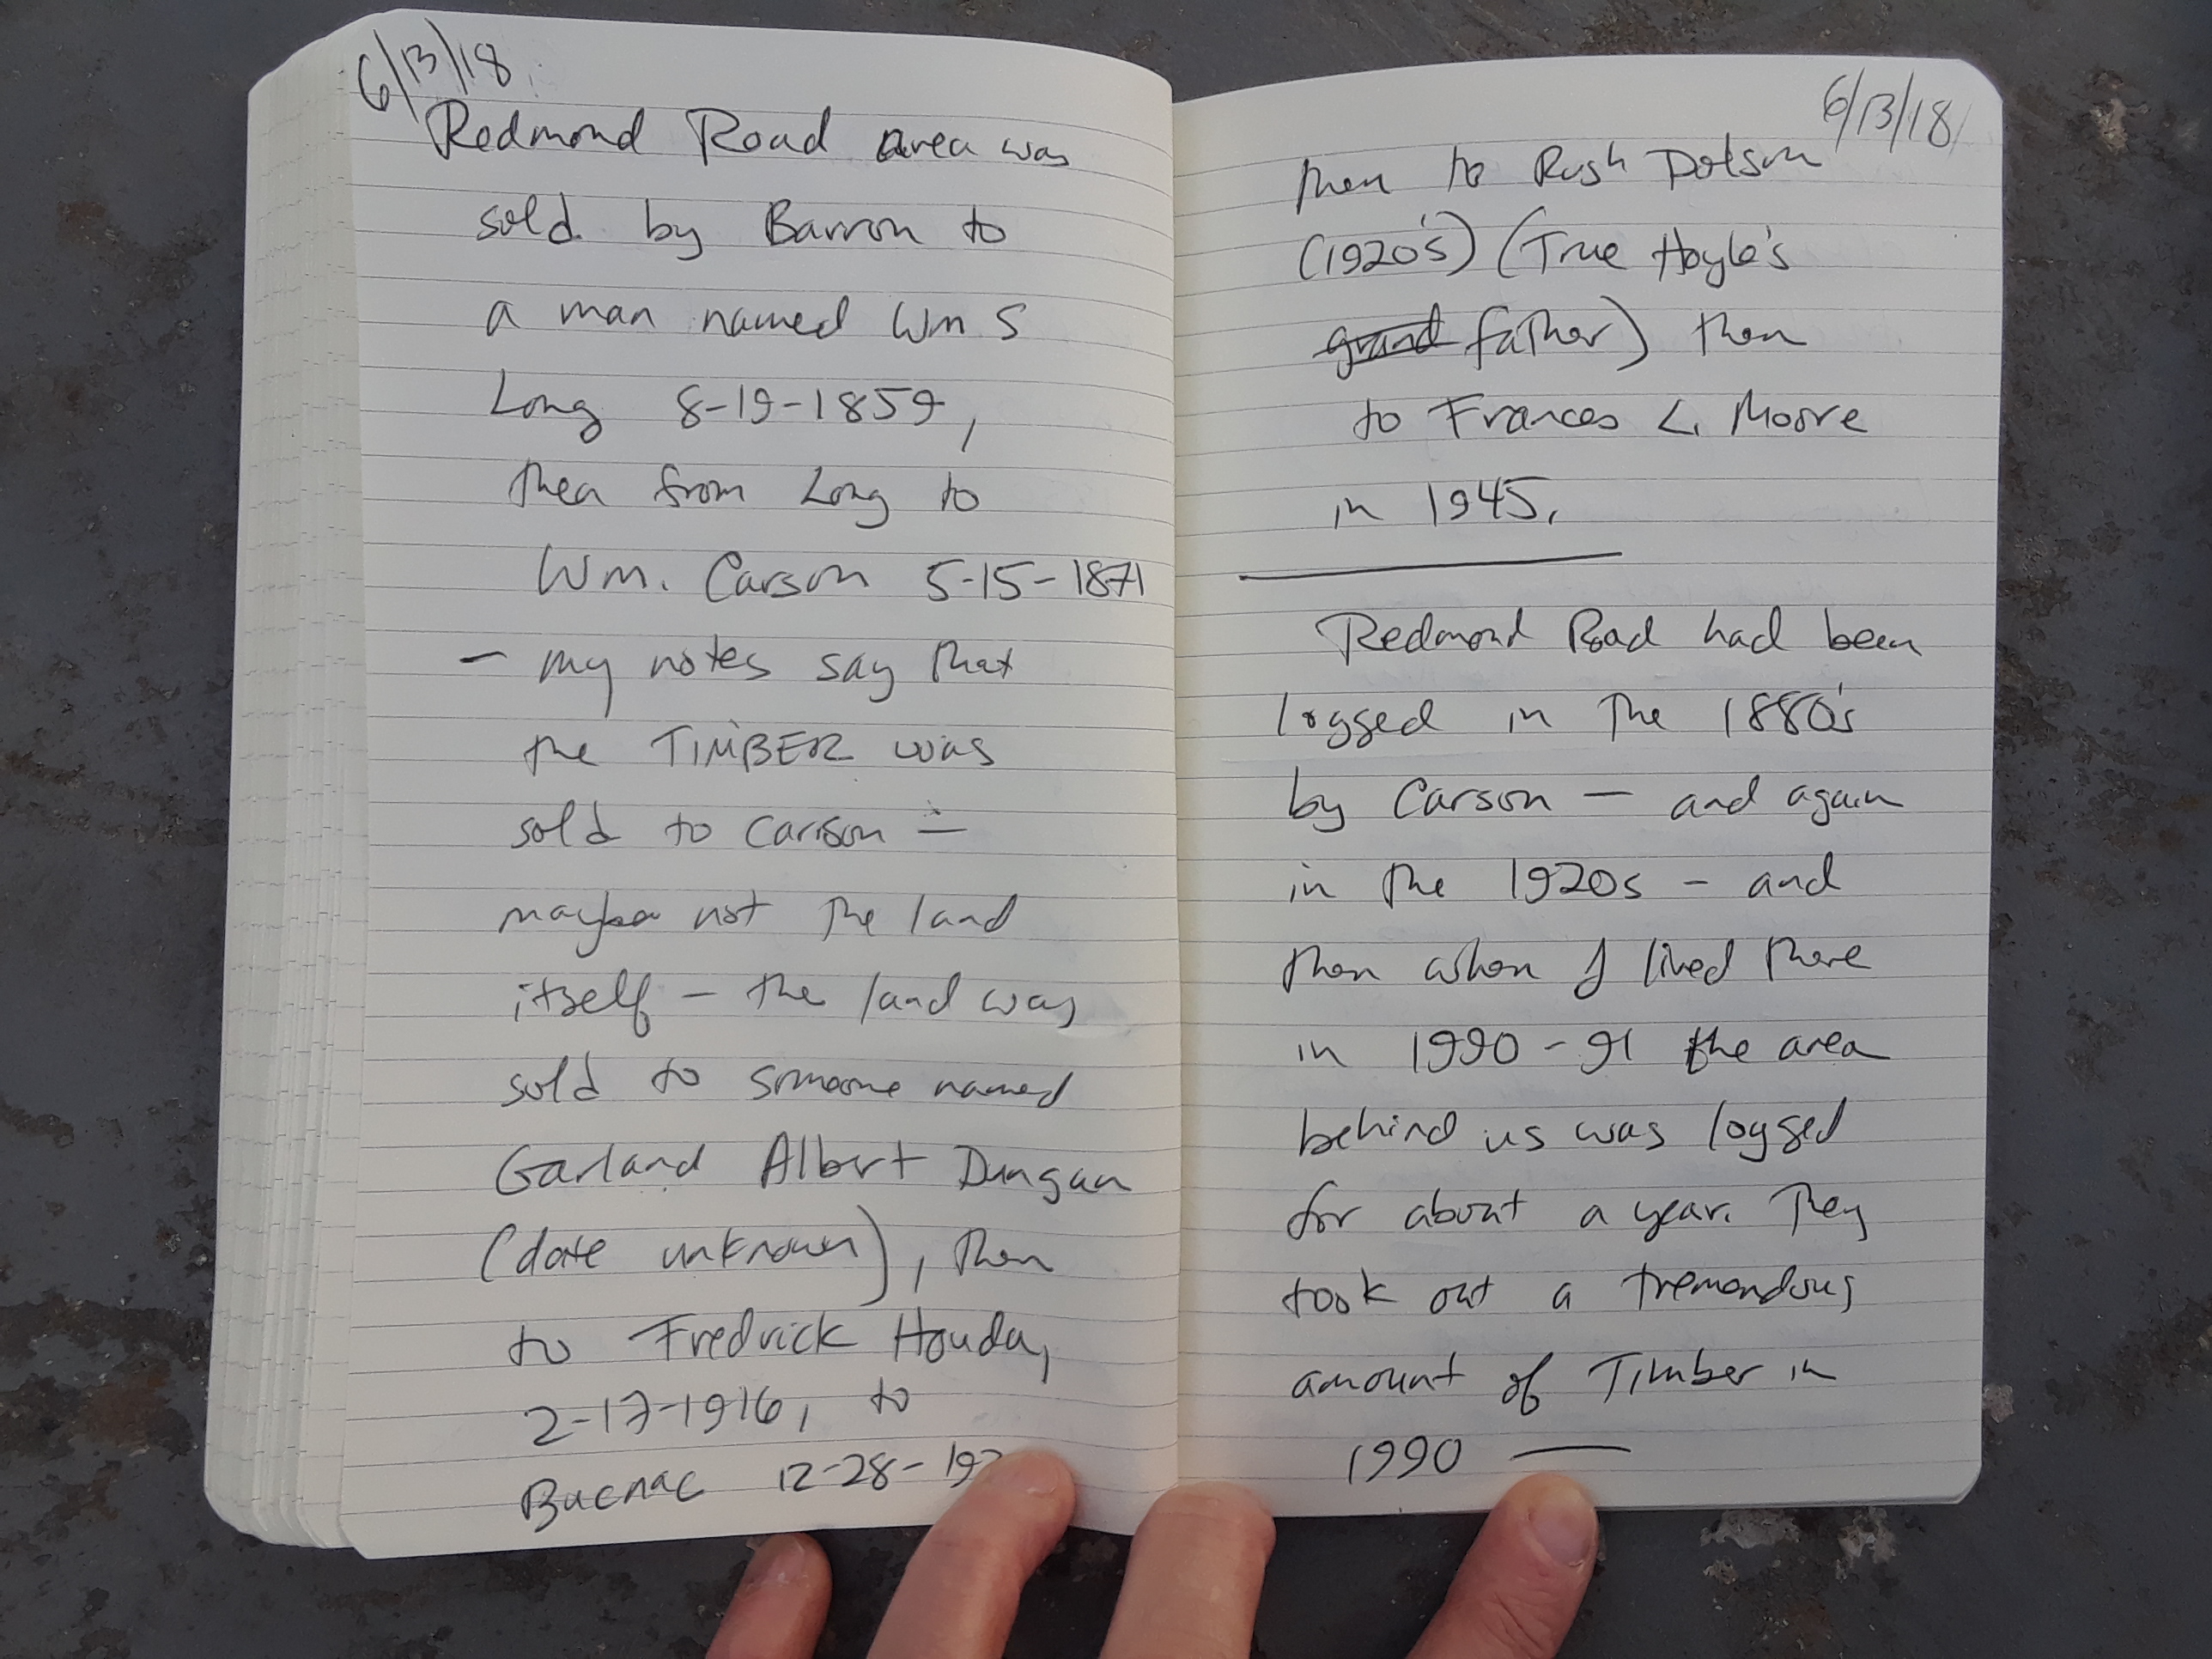 6/13/18
Redmond Road area was
sold by Barron to
a man named Wm S
Long 8-19-1859,
then from Long to
Wm. Carson 5-15-1871
- my notes say that
the TIMBER was
sold to Carson -
maybe not the land
itself - the land was
sold to someone named
Garland Albert Dungan
(date unknown), then
to Fredrick Houda,
2-17-1916, to
Bucnac 12-28-192
6/13/18
then to Rush Dotson
(1920's) (True Hoyle's
grand father) then
to Frances L. Moore
in 1945.
Redmond Road had been
logged in the 1880's
by Carson - and again
in the 1920s - and
then when I lived there
in 1990-91 the area
behind us was logged
for about a year. They
took out a tremendous
amount of Timber in
1990 —